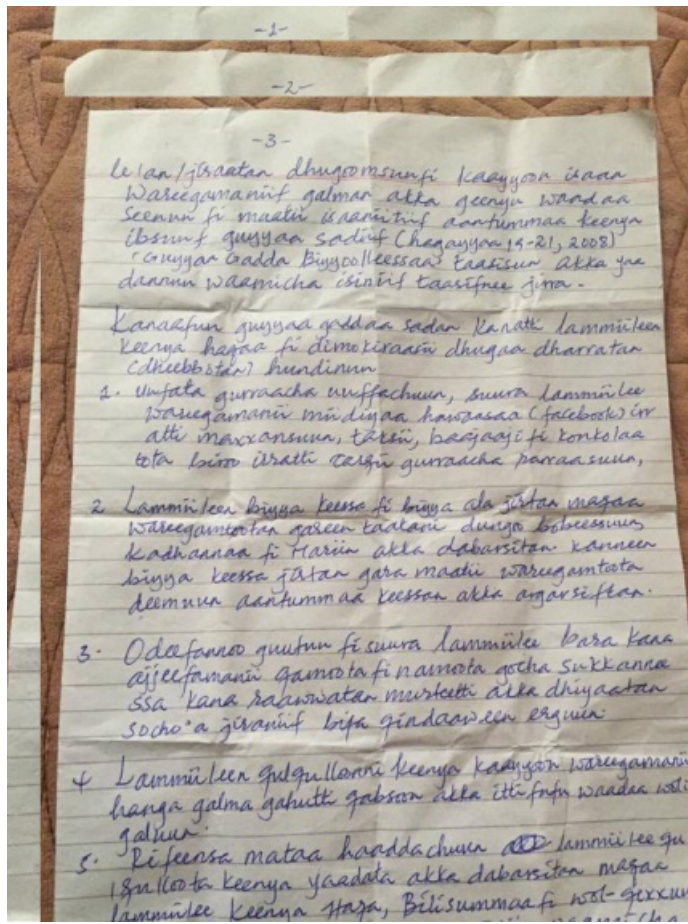 -1-
-2-
-3-
le lan / jiraatan dhugoomsuunfi kaayyoon isaan
Wareegamaniif galman akka geenyu waadaa
seenun fi maatii isaaniitiif aantummaa keenya
ibsunf guyyaa sadiif (Hagayyaa 19-21, 2008)
"Guyyaa Gadda Biyyoolleessaa" taasisun akka yaa
dannun waamicha isiniif taasifnee jirra.
Kanaafun guyyaa gaddaa sadan kanatti lammiileen
keenya haqaa fi dimokiraasii dhugaa dharratan
(dheebbotan) hundinun
1. Uuffata gurraacha uuffachuun, suura lammiilee
wareegamanii miidiyaa hawaasaa (facebook) irr
atti maxxansuun, taksii, baajaaji fi konkolaa
tota biroo irratti targii gurraacha parraasuun,
2 Lammiileen biyya keessa fi biyya ala jirtan maqaa
wareegamtootan qareen taatanii dungoo bobeessuun
Kadhannaa fi Hariin akka dabarsitan. kanneen
biyya keessa jirtan gara maatii wareegamtoota
deemuun aantummaa keessan akka argarsiftan.
3. Odeeffannoo guutuu fi suura lammiilee bara kana
ajjeefamanii qamoota fi namoota gocha sukkanna
ssa kana raawwatan murteetti akka dhiyaatan
socho'a jiraniif bifa qindaaween erguun.
4 Lammiileen qulqulloonni keenya kaayyoon wareegamanii
hanga galma gahutti qabsoon akka itti fufu waadaa woli
galuun.
5. Rifeensa mataa haaddachuun lammiilee qu
lqulloota keenya yaadata akka dabarsitan maqaa
lammiilee keenya Haqa, Bilisummaa fi wol-qixxum